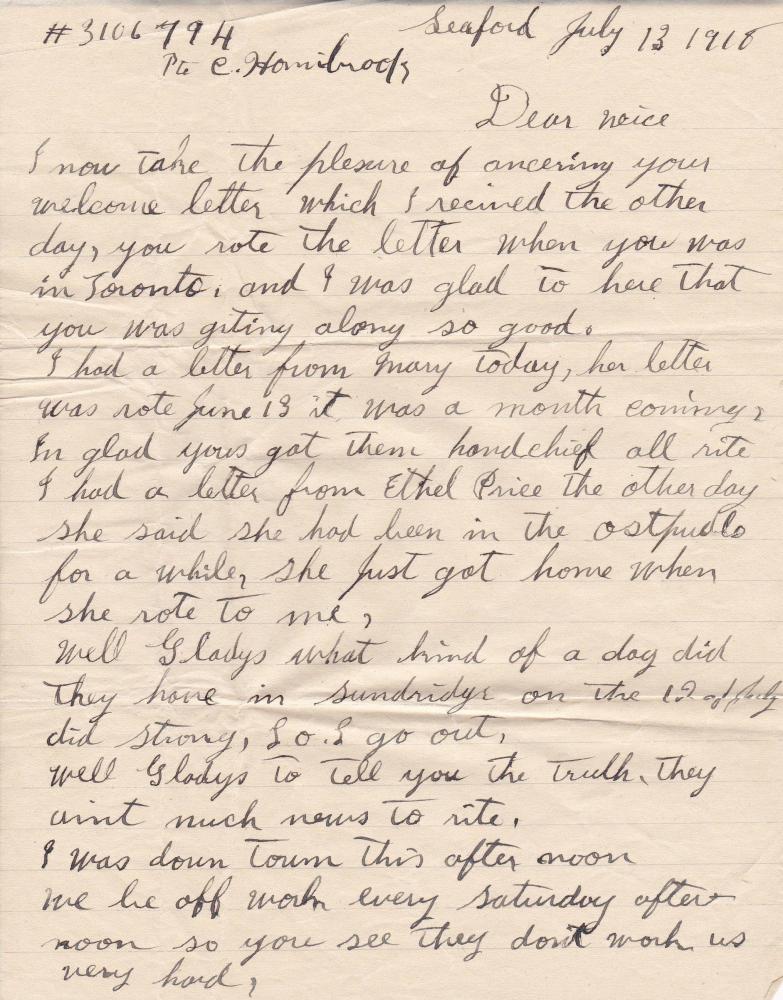 #3106794 Seaford July 13 1918
Pte C. Hornibrook
Dear neice
I now take the plesure of ancering your
welcome letter which I recived the other
day, you rote the letter when you was
in Toronto. and I was glad to here that
you was giting along so good.
I had a letter from Mary today, her letter
was rote June 13 it was a month coming,
Im glad yous got them handchief all rite
I had a letter from Ethel Price the other day
she said she had been in the
for a while, she just got home when
she rote to me,
Well Gladys what kind of a day did
they have in Sundridge on the 12 of July
did Strong, L.O.L go out,
Well Gladys to tell you the truth, they
aint much news to rite.
I was down town this after noon
we be off work every saturday after
noon so you see they dont work us
very hard,